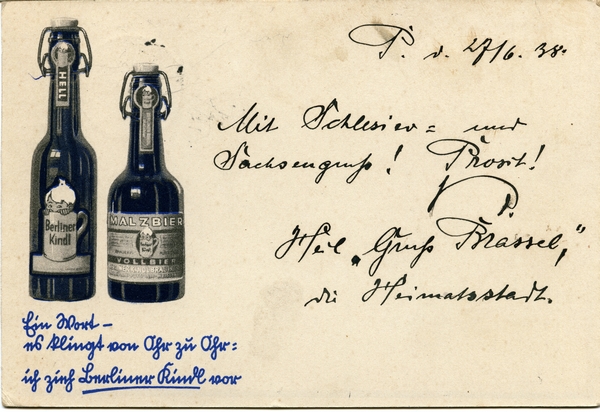 HELL
Berliner
Kindl
MALZBIER
VOLLBIER
P. d. 27/6. 38.
Mit Schlesier= und
Sachsengruß! Prosit!
P.
Heil „Gruß Brassel,"
die Heimatsstadt.
Ein Wort —
es klingt von Ohr zu Ohr:
ich zieh Berliner Kindl vor